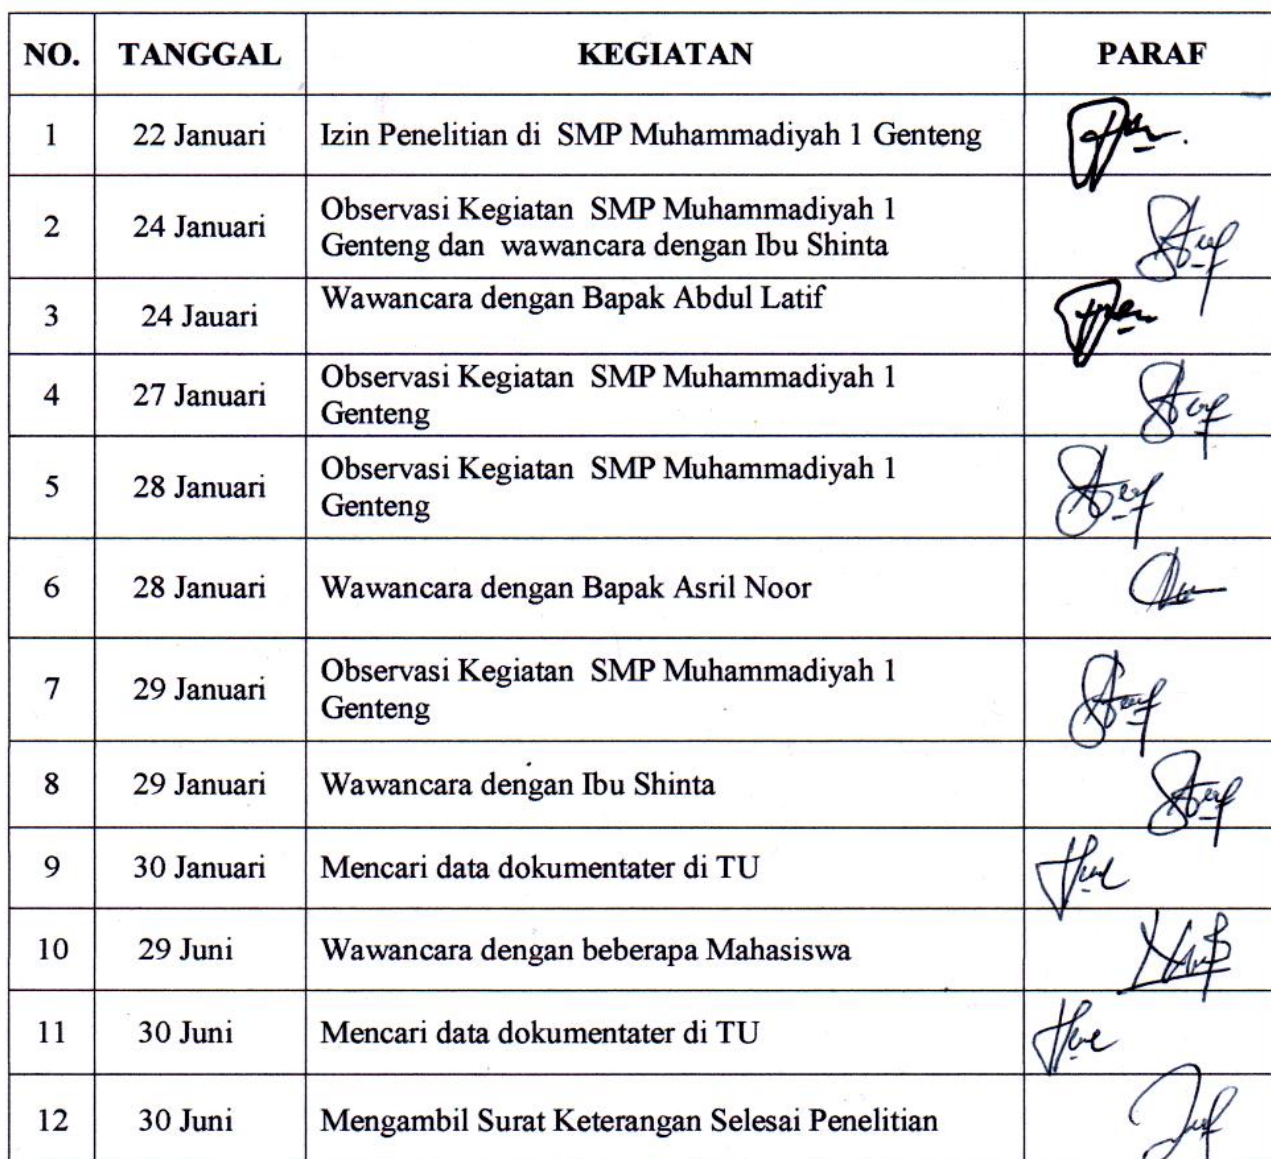 NO. TANGGAL KEGIATAN PARAF
1 22 Januari Izin Penelitian di SMP Muhammadiyah 1 Genteng
2 24 Januari Observasi Kegiatan SMP Muhammadiyah 1
Genteng dan wawancara dengan Ibu Shinta
3 24 Jauari Wawancara dengan Bapak Abdul Latif
4 27 Januari Observasi Kegiatan SMP Muhammadiyah 1
Genteng
5 28 Januari Observasi Kegiatan SMP Muhammadiyah 1
Genteng
6 28 Januari Wawancara dengan Bapak Asril Noor
7 29 Januari Observasi Kegiatan SMP Muhammadiyah 1
Genteng
8 29 Januari Wawancara dengan Ibu Shinta
9 30 Januari Mencari data dokumentater di TU
10 29 Juni Wawancara dengan beberapa Mahasiswa
11 30 Juni Mencari data dokumentater di TU
12 30 Juni Mengambil Surat Keterangan Selesai Penelitian